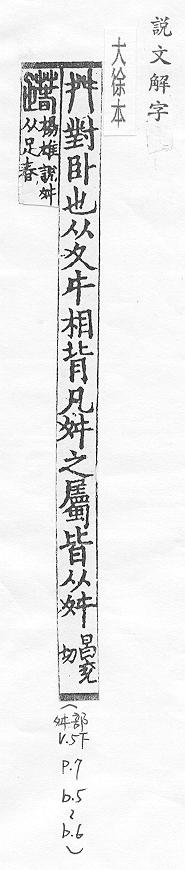 説文解字
大徐本
舛對臥也从夊㐄相背凡舛之屬皆从舛
昌兖
切
踳楊雄說舛
从足春
(舛部
V.5下
p.7
b.5
~
b.6)